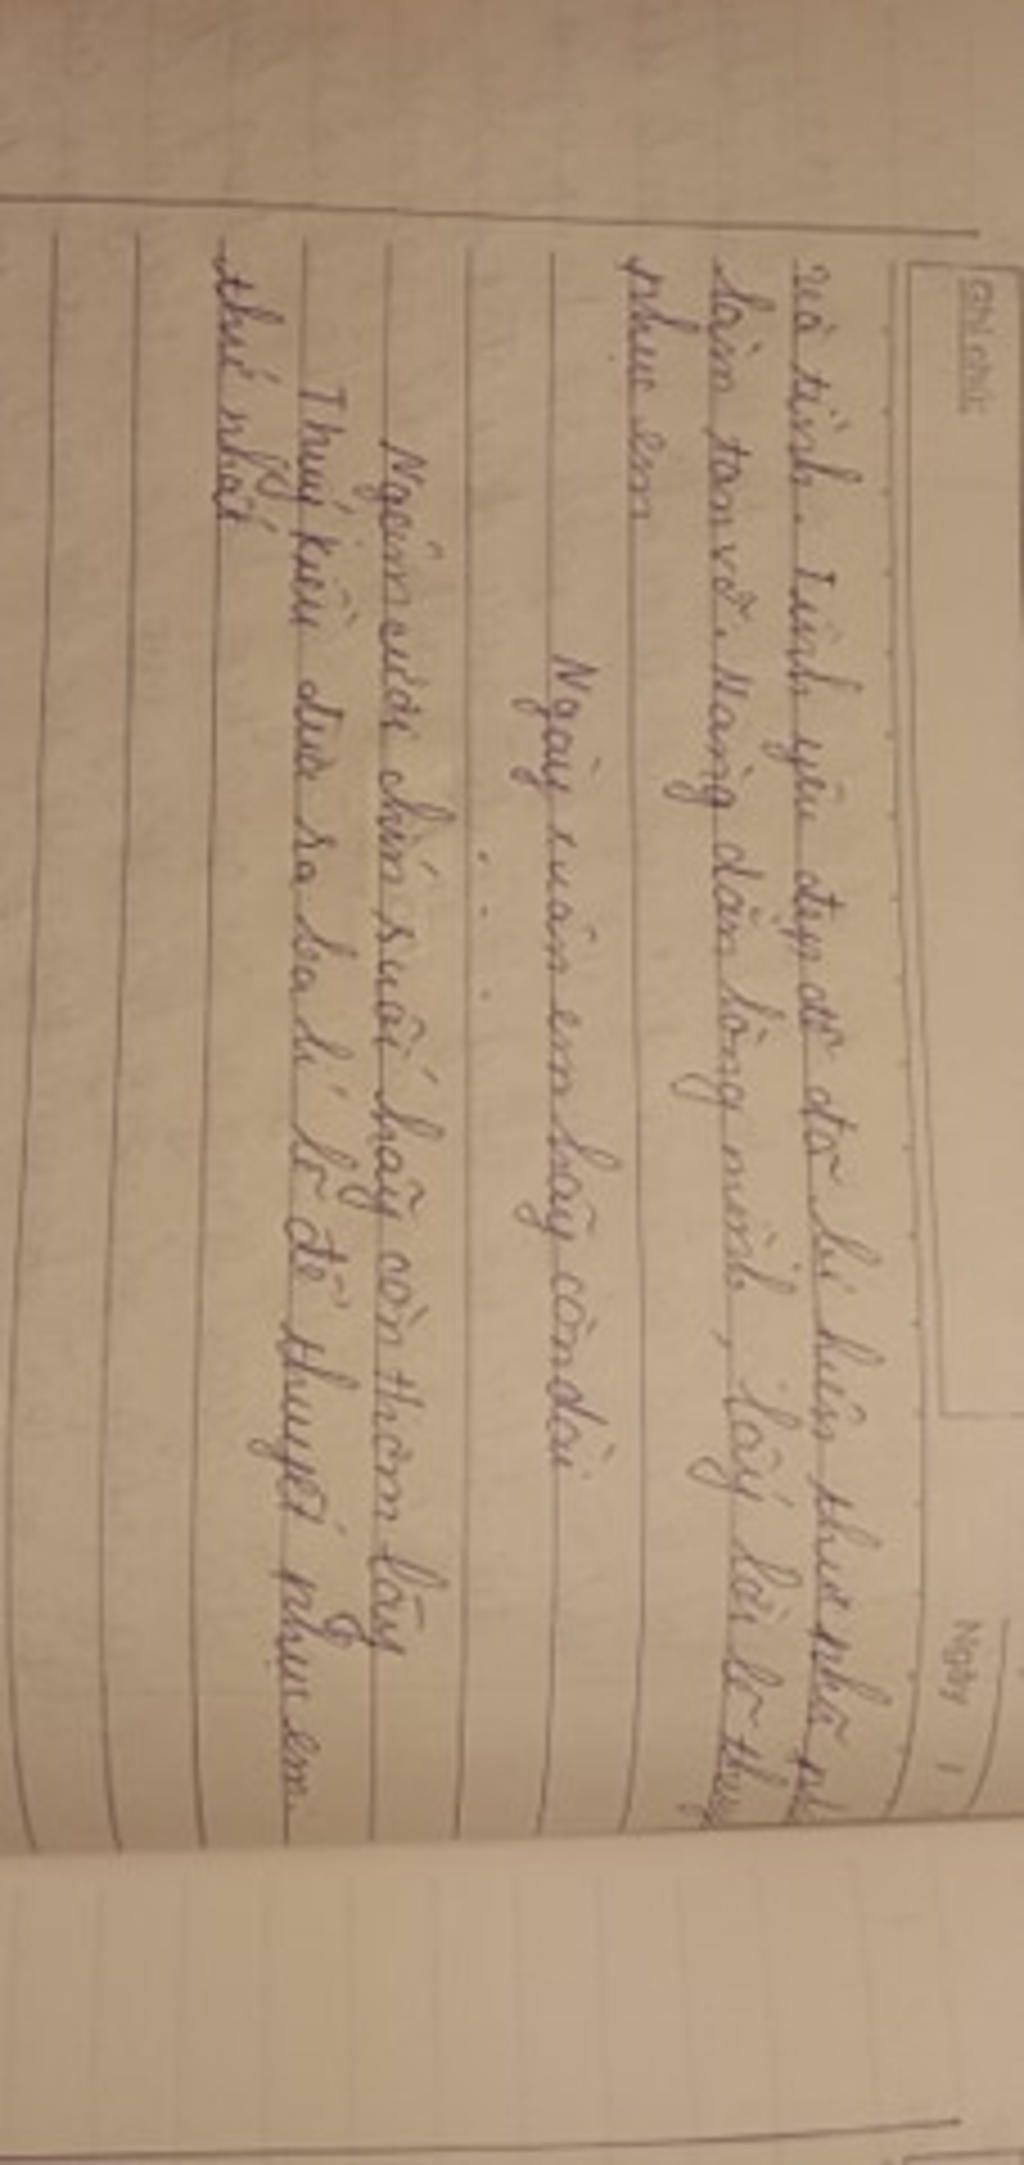 Ghi chú:
Ngày /
và tình. Tình yêu đẹp đẽ đó bị hiện thực
làm tan vỡ. Nàng dằn lòng mình, lấy lời lẽ
phục em
Ngày xuân em hãy còn dài
....
Ngậm cười chín suối hãy còn thơm lây
Thuý Kiều đưa ra ba lí lẽ để thuyết phục em.
thứ nhất